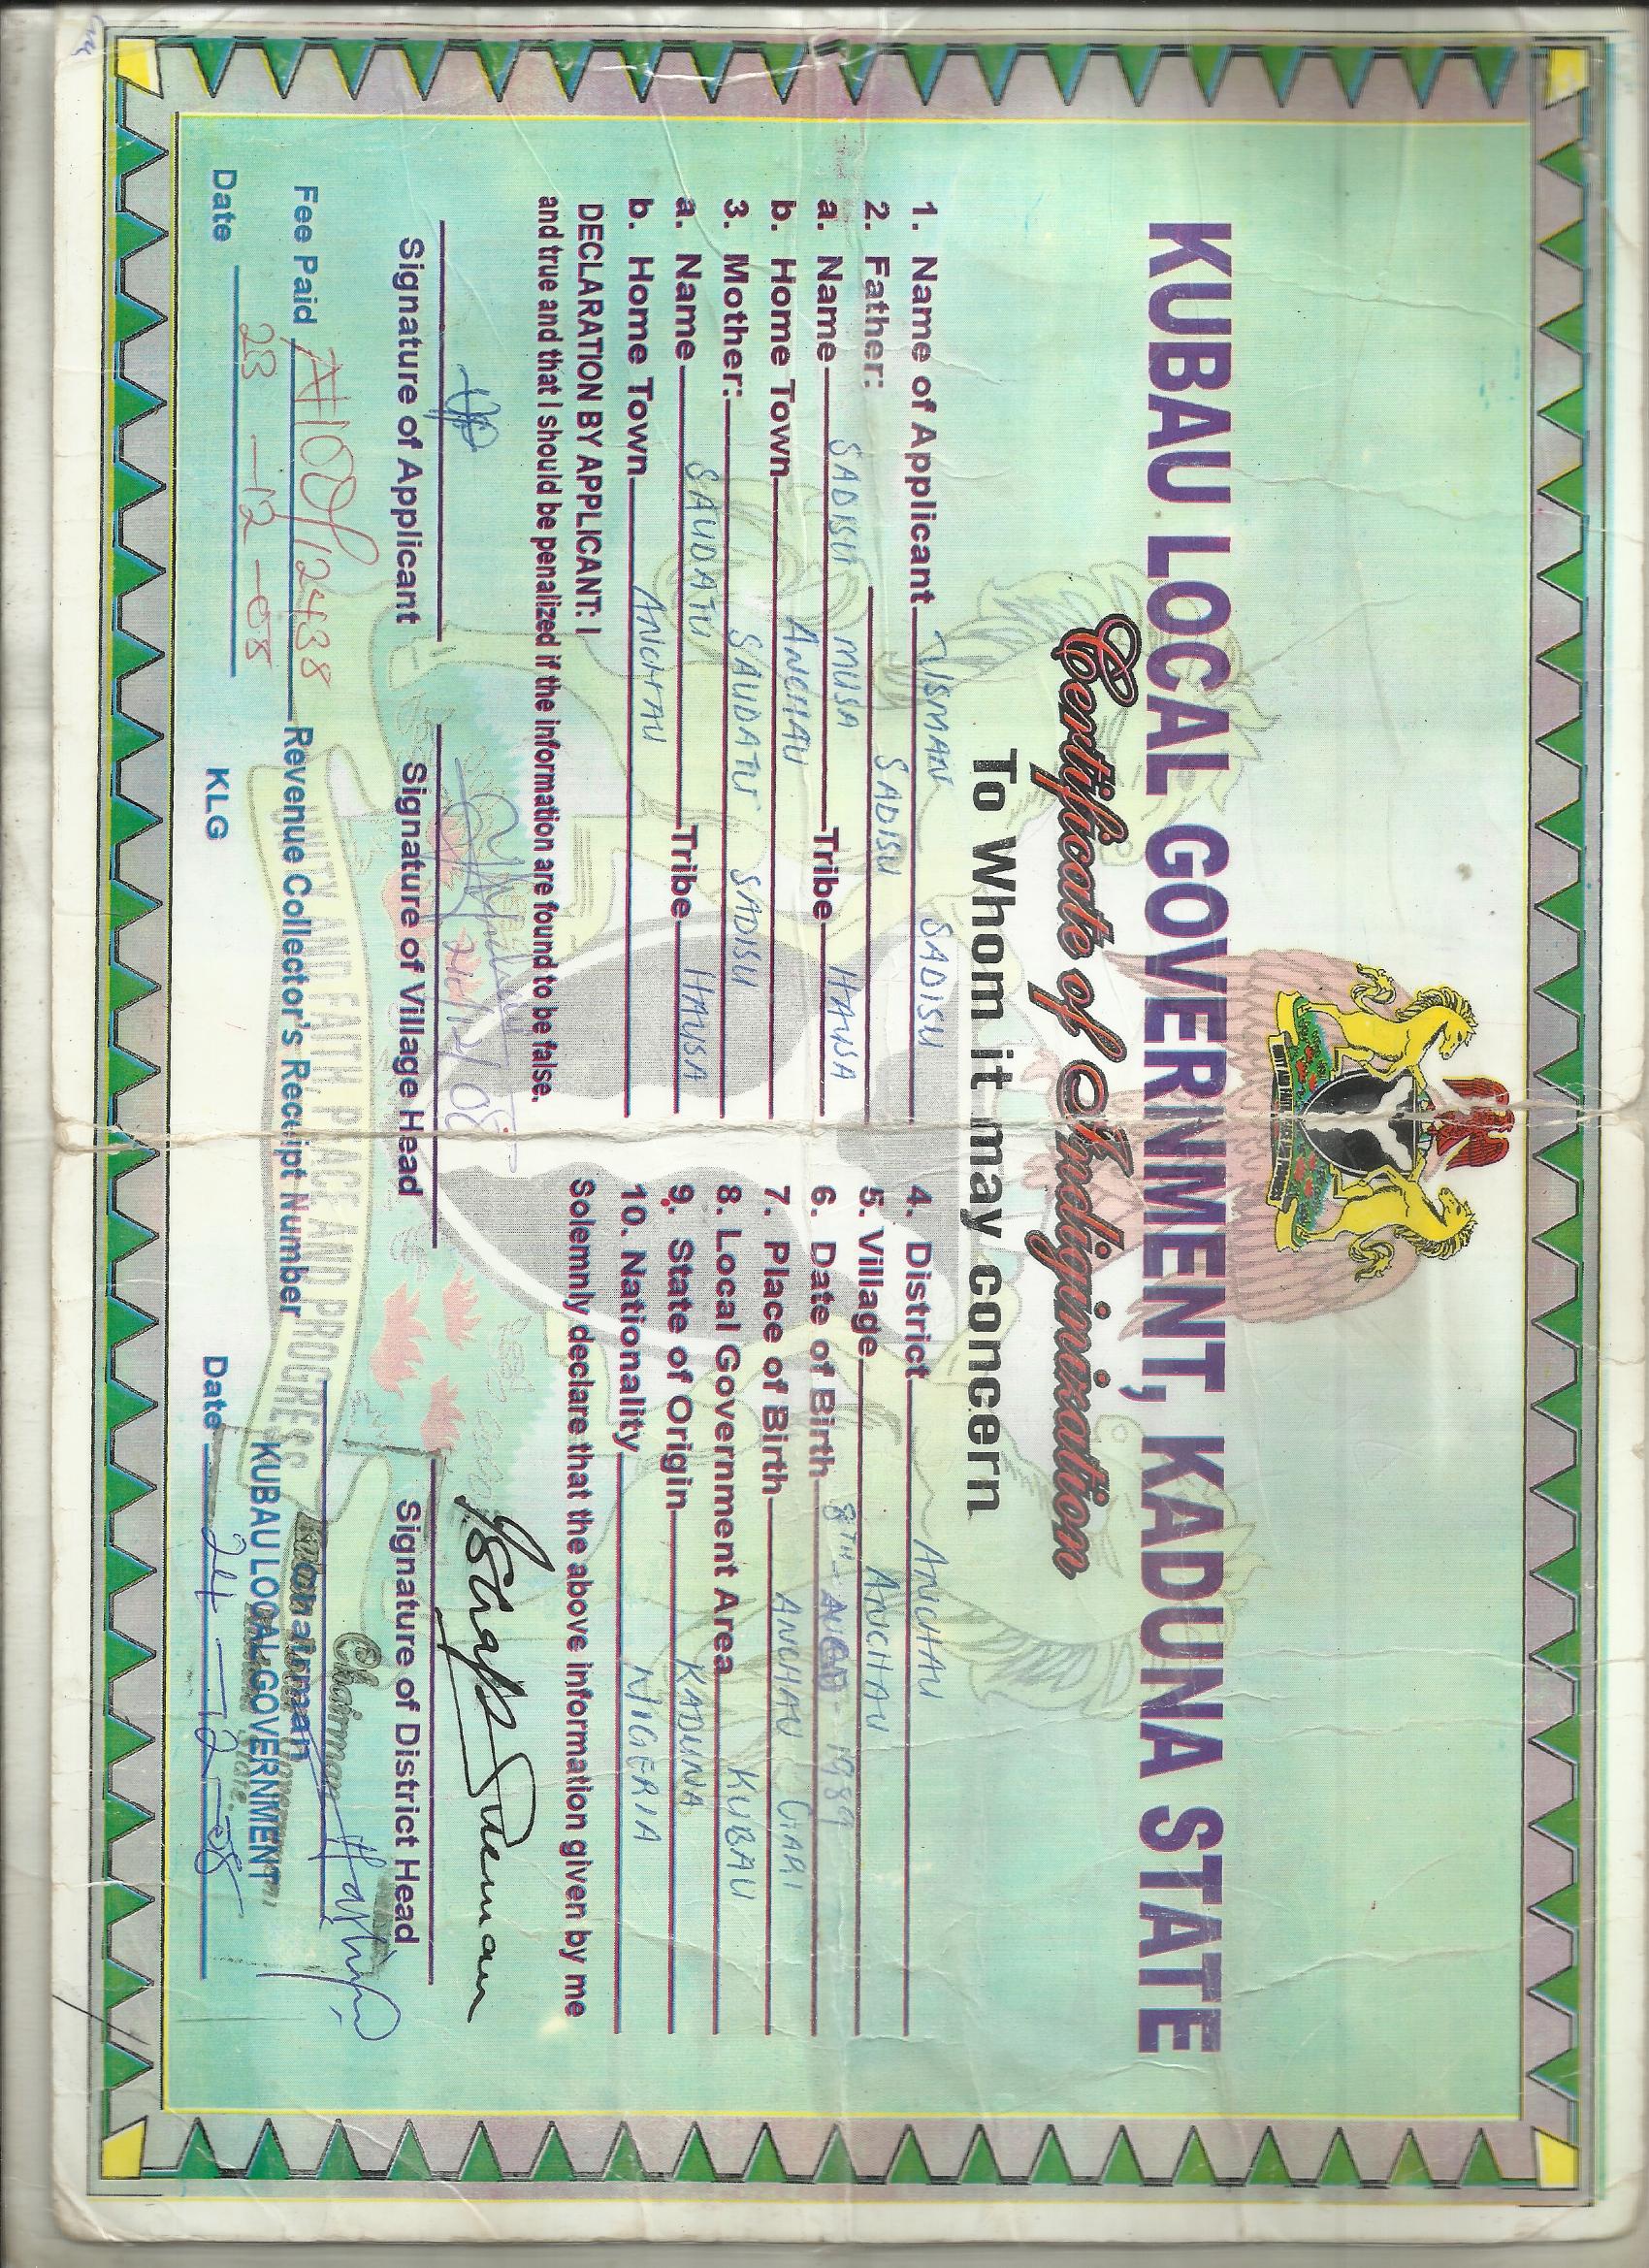 KUBAU LOCAL GOVERNMENT, KADUNA STATE
Certificate of Indiginization
To Whom it may concern
1. Name of Applicant USMAN SADISU
2. Father: SADISU
a. Name SADISU MUSA Tribe HAUSA
b. Home Town ANCHAU
3. Mother: SAUDATU SADISU
a. Name SAUDATU Tribe HAUSA
b. Home Town ANCHAU
4. District ANCHAU
5. Village ANCHAU
6. Date of Birth 8TH - AUG - 1989
7. Place of Birth ANCHAU
8. Local Government Area KUBAU
9. State of Origin KADUNA
10. Nationality NIGERIA
DECLARATION BY APPLICANT: I Solemnly declare that the above information given by me
and true and that I should be penalized if the information are found to be false.
24/12/08
Signature of Applicant
Signature of Village Head
Signature of District Head
Fee Paid ₦100/12438 Revenue Collector's Receipt Number
Chairman
Chairman
KUBAU LOCAL GOVERNMENT
Date 23-12-08
KLG
Date 24-12-08
UNITY AND FAITH PEACE AND PROGRESS